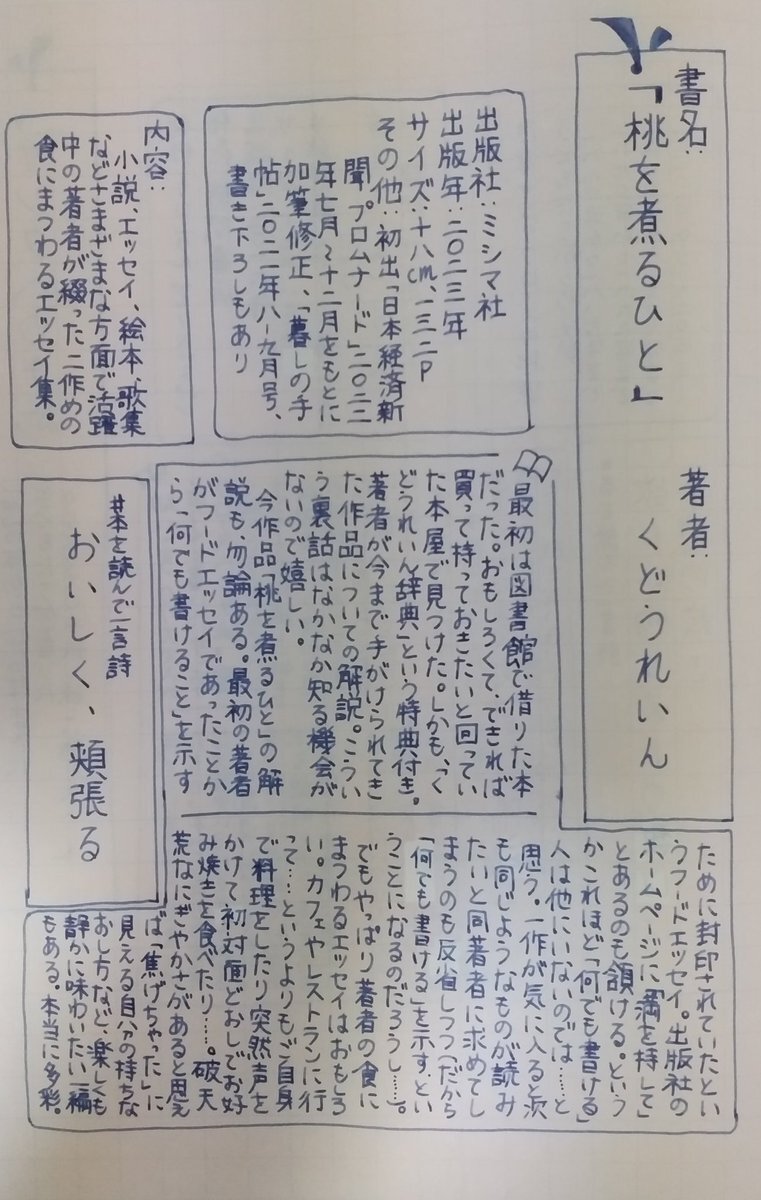 書名:
「桃を煮るひと」
著者:
くどうれいん
出版社:ミシマ社
出版年:二〇二三年
サイズ:十八cm、一三二P
その他:初出「日本経済新
聞 プロムナード」二〇二二
年七月~十二月をもとに
加筆修正、「暮しの手
帖」二〇二一年八-九月号、
書き下ろしもあり
内容:
小説、エッセイ、絵本、歌集
などさまざまな方面で活躍
中の著者が綴った二作めの
食にまつわるエッセイ集。
最初は図書館で借りた本
だった。おもしろくて、できれば
買って持っておきたいと回ってい
た本屋で見つけた。しかも、「く
どうれいん辞典」という特典付き。
著者が今まで手がけられてき
た作品についての解説。こうい
う裏話はなかなか知る機会が
ないので嬉しい。
今作品「桃を煮るひと」の解
説も、勿論ある。最初の著者
がフードエッセイであったことか
ら「何でも書けること」を示す
ために封印されていたとい
うフードエッセイ。出版社の
ホームページに「満を持して」
とあるのも頷ける。という
かこれほど「何でも書ける」
人は他にいないのでは……と
思う。一作が気に入ると次
も同じようなものが読み
たいと同著者に求めてし
まうのも反省しつつ(だから
「何でも書ける」を示す、とい
うことになるのだろうし……)。
でもやっぱり著者の食に
まつわるエッセイはおもしろ
い。カフェやレストランに行
って……というよりもご自身
で料理をしたり突然声を
かけて初対面どおしでお好
み焼きを食べたり……。破天
荒なにぎやかさがあると思え
ば「焦げちゃった」に
見える自分の持ちな
おし方など、楽しくも
静かに味わいたい一編
もある。本当に多彩。
#本を読んで一言詩
おいしく、頬張る